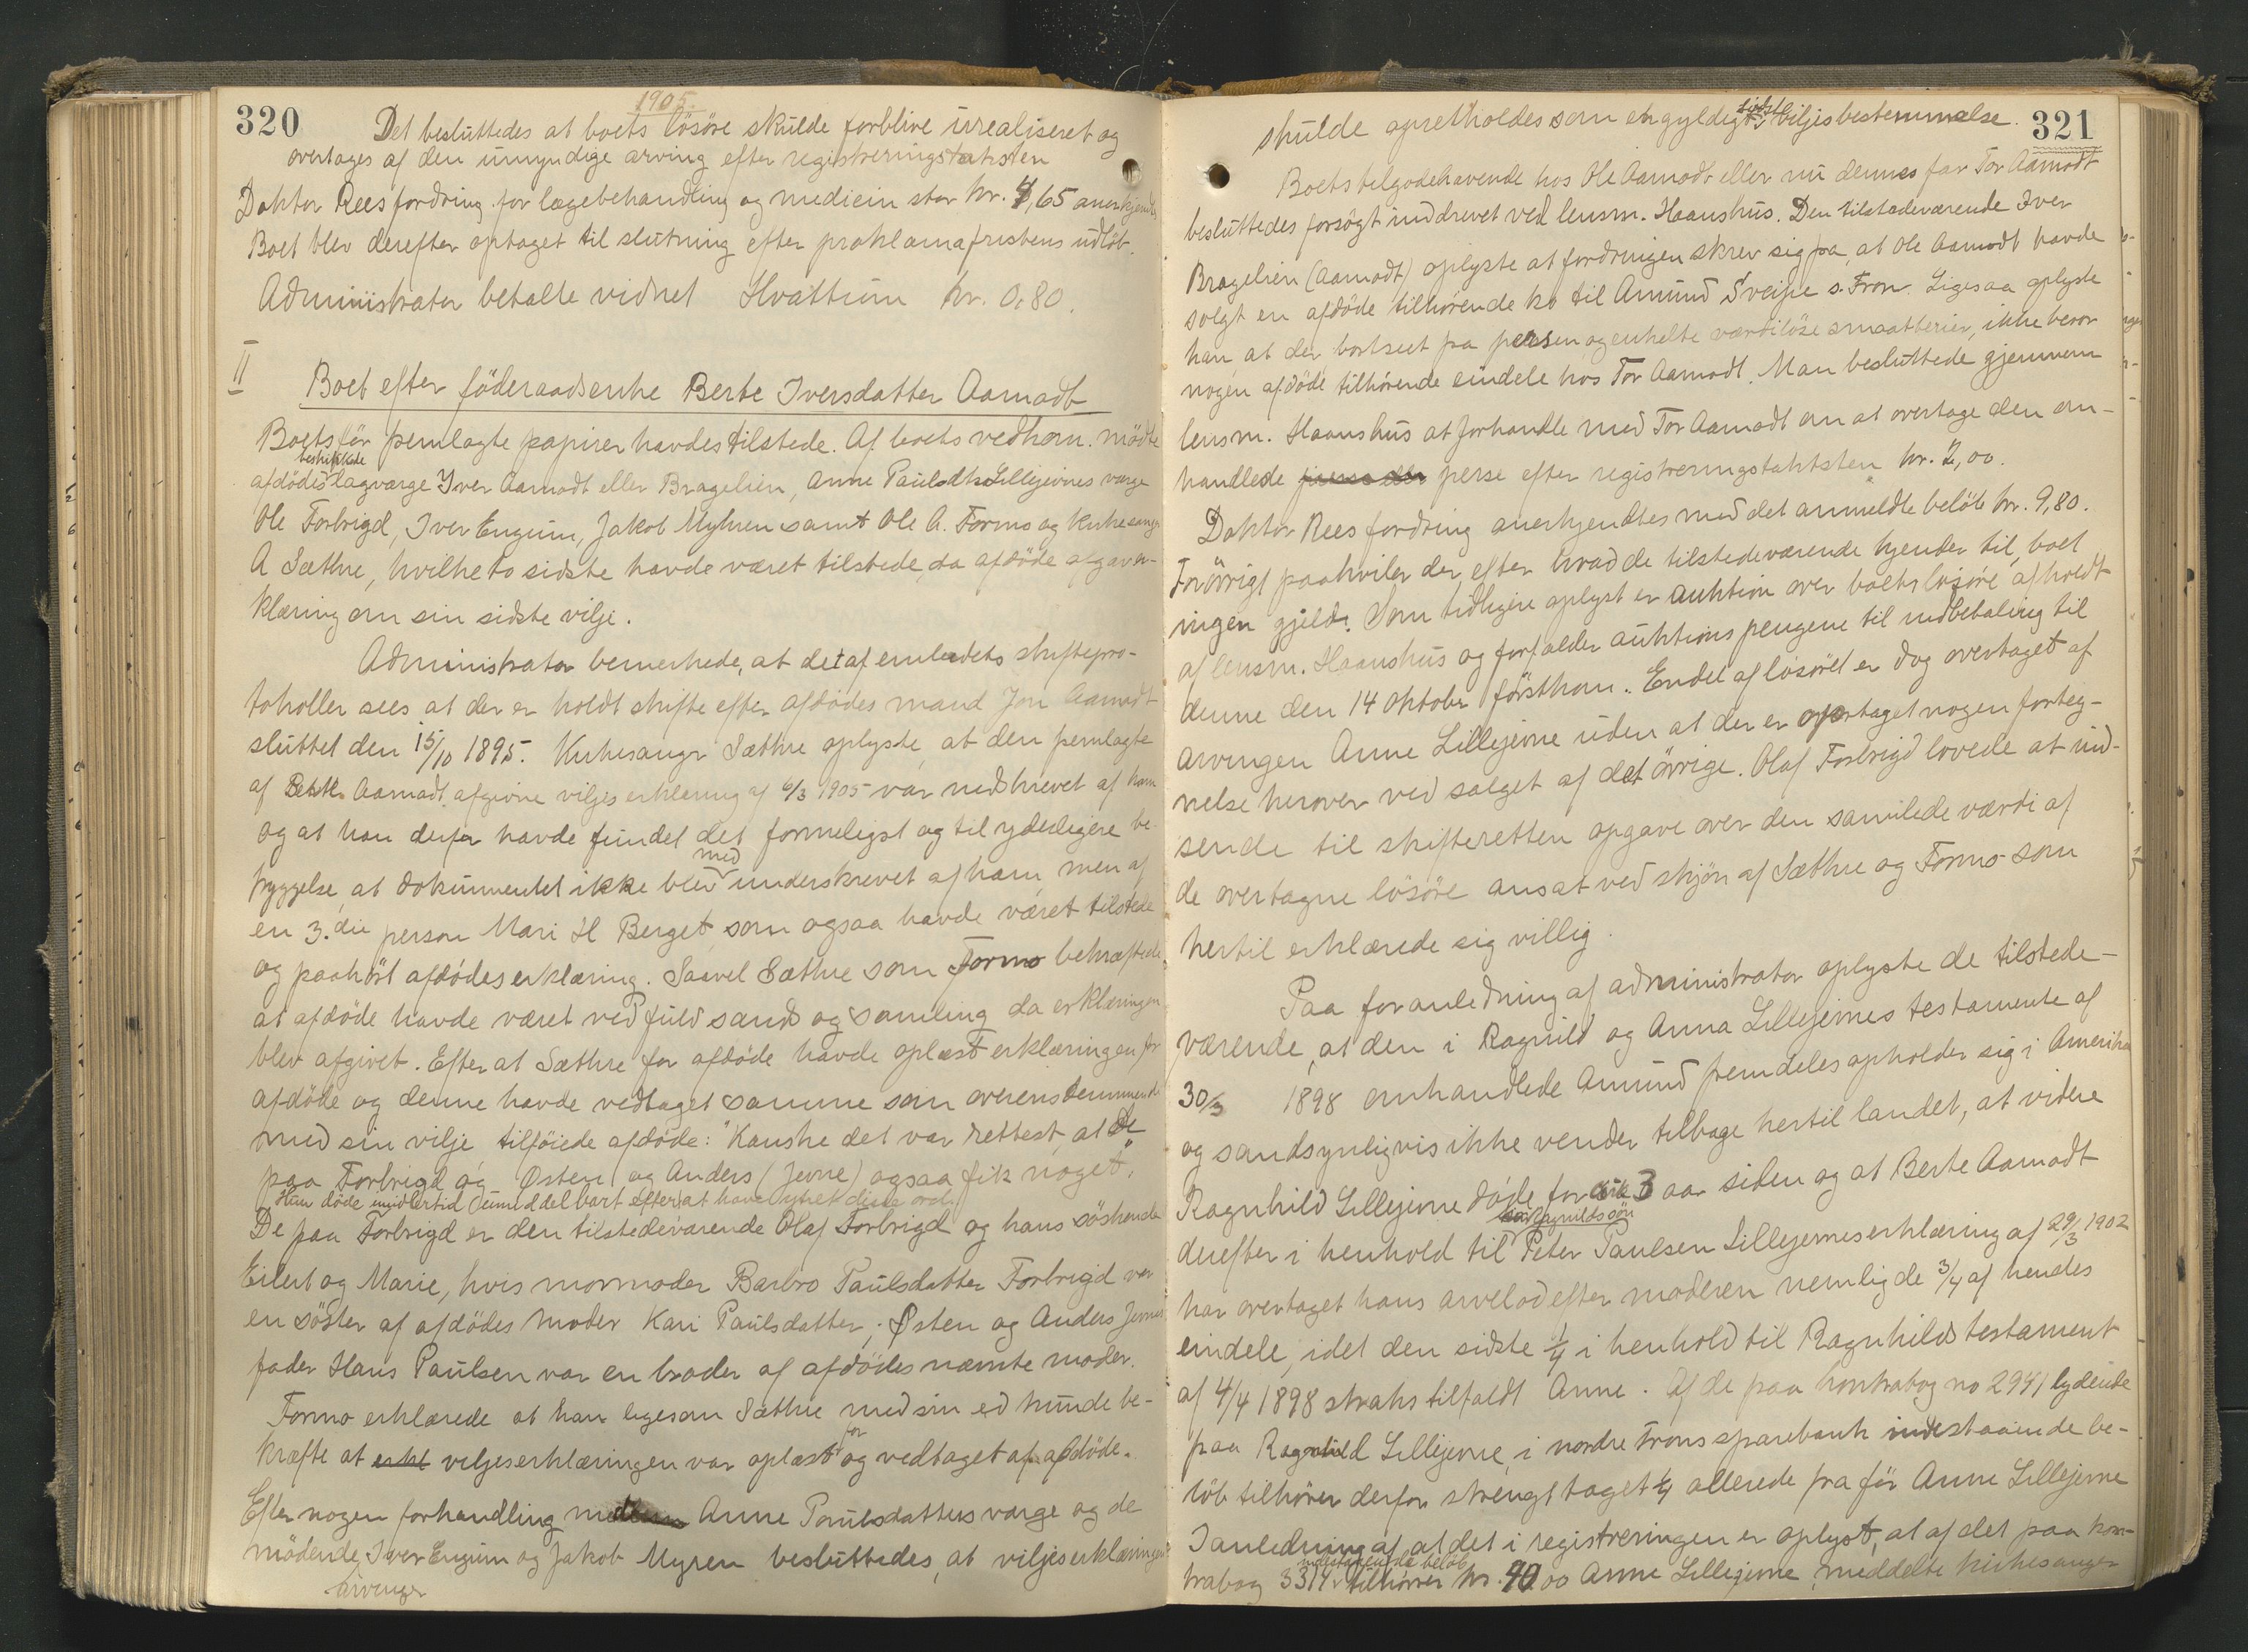 320
1905.
Det besluttedes at boets lösöre skulde forblive urealiseret og
overtages af den umyndige arving efter registreringstaksten
Doktor Rees fordring for lægebehandling og medicin stor kr. 4,65 anerkjendtes
Boet blev derefter optaget til slutning efter proklamafristens udlöb.
Administrator betalte vidnet Hvattum kr. 0,80.
II
Boet efter föderaadsenke Berte Iversdatter Aamodt
Boets för fremlagte papirer havdes tilstede. Af boets vedkom. mödte
beskikkede
afdödes lagværge Iver Aamodt eller Bragelien, Anne Paulsdtr Lillejevnes værge
Ole Forbrigd, Iver Engum, Jakob Myhren samt Ole A. Formo og kirkesanger
A Sæthre, hvilke to sidste havde været tilstede, da afdöde afgav er-
klæring om sin sidste vilje.
Administrator bemerkede, at det af embedets skiftepro-
tokoller sees at der er holdt skifte efter afdödes mand Jon Aamodt
sluttet den 15/10 1895. Kirkesanger Sæthre oplyste, at den fremlagte
af Berte Aamodt afgivne viljeserklæring af 6/3 1905 var nedskrevet af ham
og at han derfor havde fundet det formeligst og til yderligere be-
med
tryggelse, at dokumentet ikke blev underskrevet af ham, men af
en 3.die person Mari H Berget som ogsaa havde været tilstede
og paahört afdödes erklæring. Saavel Sæthre som Formo bekræftede
at afdöde havde været ved fuld sands og samling da erklæringen
blev afgivet. Efter at Sæthre for afdöde havde oplæst erklæringen for
afdöde og denne havde vedtaget samme som overensstemmende
med sin vilje tilföiede afdöde: "Kanske det var rettest at de
paa Forbrigd og Østen og Anders (Jevne) ogsaa fik noget".
Hun döde imidlertid umiddelbart efter at have ytret disse ord.
De paa Forbrigd er den tilstedeværende Olaf Forbrigd og hans söskende
Eilert og Marie, hvis mormoder Barbro Paulsdatter Forbrigd var
en söster af afdödes moder Kari Paulsdatter; Østen og Anders Jevnes
fader Hans Paulsen var en broder af afdödes nævnte moder.
Formo erklærede at han ligesom Sæthre med sin ed kunde be-
for
kræfte at erkl viljeserklæringen var oplæst og vedtaget af afdöde.
Efter nogen forhandling mellem Anne Paulsdatters værge og de
mödende Iver Engum og Jakob Myren besluttedes, at viljeserklæringen
arvinger
321
sidste
skulde opretholdes som en gyldig viljesbestemmelse.
Boets tilgodehavende hos Ole Aamodt eller nu dennes far Tor Aamodt
besluttedes forsögt inddrevet ved lensm. Haanshus. Den tilstedeværende Iver
Bragelien (Aamodt) oplyste at fordringen skrev sig fra, at Ole Aamodt havde
solgt en afdöde tilhörende ko til Amund Sveipe s. Fron. Ligesaa oplyste
han, at der bortseet fra persen og enkelte værdilöse smaatterier, ikke beror
nogen afdöde tilhörende eiendele hos Tor Aamodt. Man besluttede gjennem
lensm. Haanshus at forhandle med Tor Aamodt om at overtage den om-
handlede perse efter registreringstaksten kr. 2,00.
Doktor Rees fordring anerkjendtes med det anmeldte belöb kr. 9,80.
Forövrigt paahviler der, efter hvad de tilstedeværende kjender til, boet
ingen gjeld. Som tidligere oplyst er auktion over boets lösöre afholdt
af lensm. Haanshus og forfalder auktionspengene til indbetaling til
denne den 14 oktober förstkom. Endel af lösöret er dog overtaget af
arvingen Anne Lillejevne uden at der er optaget nogen forteg-
nelse herover ved salget af det övrige. Olaf Forbrigd lovede at ind-
sende til skifteretten opgave over den samlede værdi af
de overtagne lösöre ansat ved skjön af Sæthre og Formo som
hertil erklærede sig villig.
Paa foranledning af administrator oplyste de tilstede-
værende, at den i Ragnild og Anna Lillejevnes testamente af
30/3 1898 omhandlede Amund fremdeles opholder sig i Amerika
og sandsynligvis ikke vender tilbage hertil landet, at videre
Ragnhild Lillejevne döde for 3 aar siden og at Berte Aamodt
Ragnilds sön
derefter i henhold til Peter Paulsen Lillejevnes erklæring af 29/3 1902
har overtaget hans arvelod efter moderen nemlig de 3/4 af hendes
eiendele, idet den sidste 1/4 i henhold til Ragnhilds testament
af 4/4 1898 straks tilfaldt Anne. Af de paa kontrabog no 2941 lydende
paa Ragnhild Lillejevne, i nordre Frons sparebank indestaaende be-
löb tilhörer derfor strengt taget 1/4 allerede fra för Anne Lillejevne
I anledning af at det i registreringen er oplyst, at af det paa kon-
indestaaende belöb
trabog 3314 tilhörer kr. 40.00 Anne Lillejevne, meddelte kirkesanger